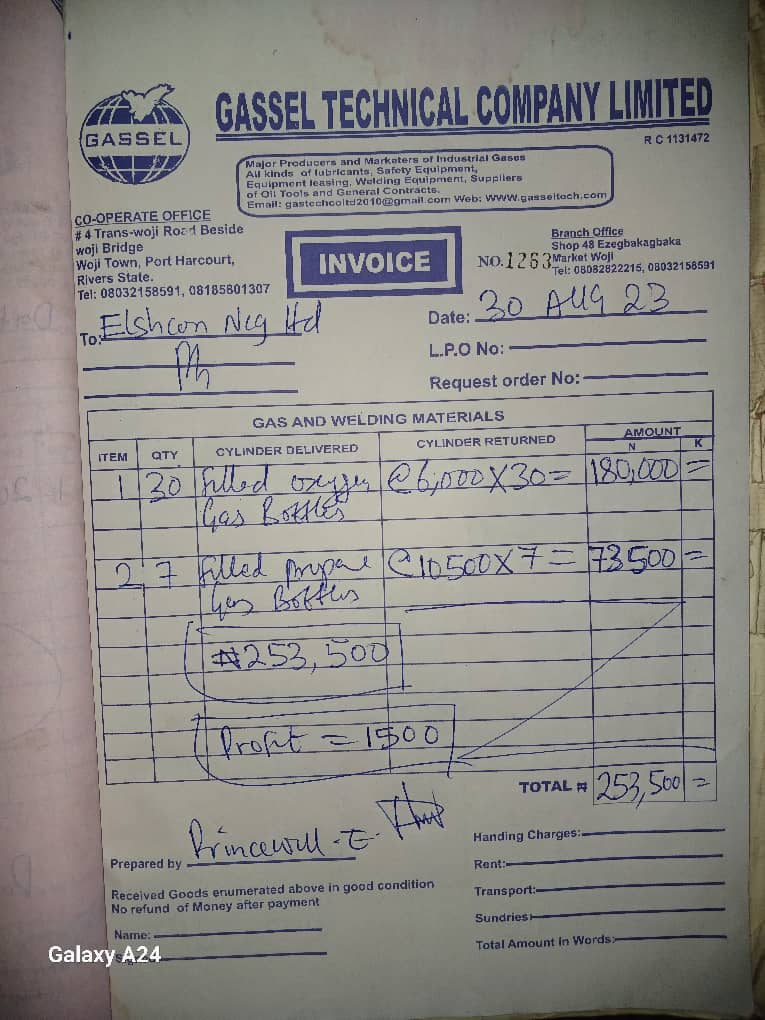 GASSEL
GASSEL TECHNICAL COMPANY LIMITED
R C 1131472
Major Producers and Marketers of Industrial Gases
All kinds of lubricants, Safety Equipment,
Equipment leasing, Welding Equipment, Suppliers
of Oil Tools and General Contracts.
Email: gastechcoltd2010@gmail.com Web: www.gasseltech.com
CO-OPERATE OFFICE
# 4 Trans-woji Road Beside
woji Bridge
Woji Town, Port Harcourt,
Rivers State.
Tel: 08032158591, 08185801307
INVOICE
Branch Office
Shop 48 Ezegbakagbaka
NO. 1263 Market Woji
Tel: 08082822215, 08032158591
To: Elshcon Nig ltd
Ph
Date: 30 AUG 23
L.P.O No:
Request order No:
GAS AND WELDING MATERIALS
ITEM QTY CYLINDER DELIVERED CYLINDER RETURNED AMOUNT
N K
1 30 filled oxygen @ 6,000 X 30 = 180,000 =
Gas Bottles
2 7 filled propane @ 10500 X 7 = 73500 =
Gas Bottles
₦253,500
Profit = 1500
TOTAL ₦ 253,500 =
Prepared by Princewill - E.
Received Goods enumerated above in good condition
No refund of Money after payment
Name:
Handing Charges:
Rent:
Transport:
Sundries:
Total Amount in Words:
Galaxy A24